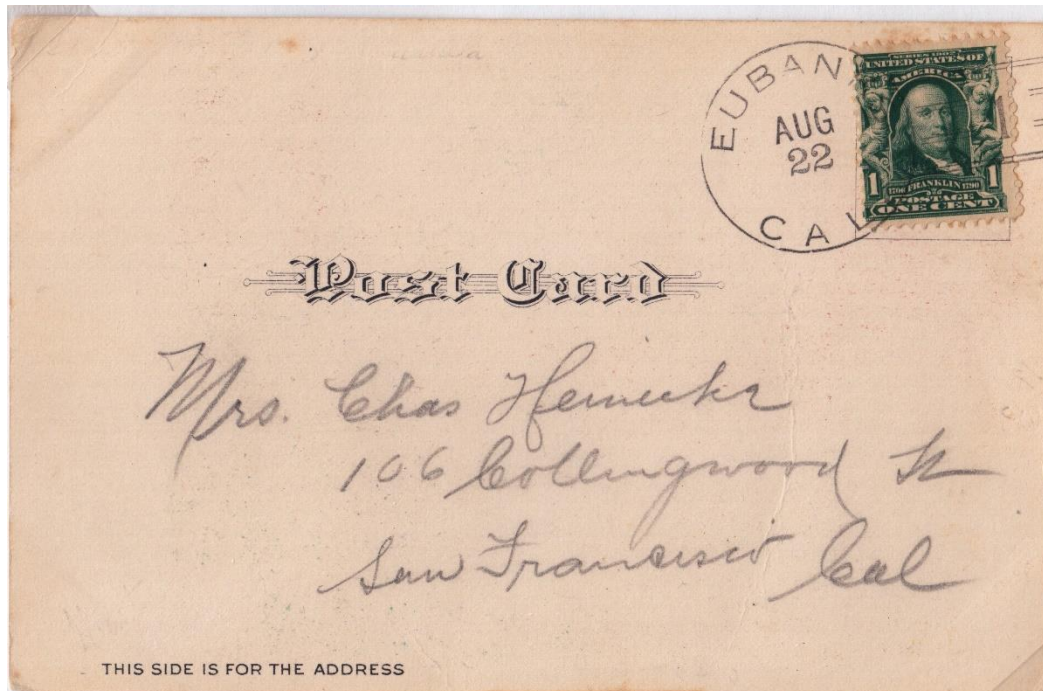 EUBAN
AUG
22
CAL
SERIES 1902
UNITED STATES OF
AMERICA
1 1706 FRANKLIN 1790 1
POSTAGE
ONE CENT
Post Card
Mrs. Chas
106 Collingwood St
San Francisco Cal
THIS SIDE IS FOR THE ADDRESS